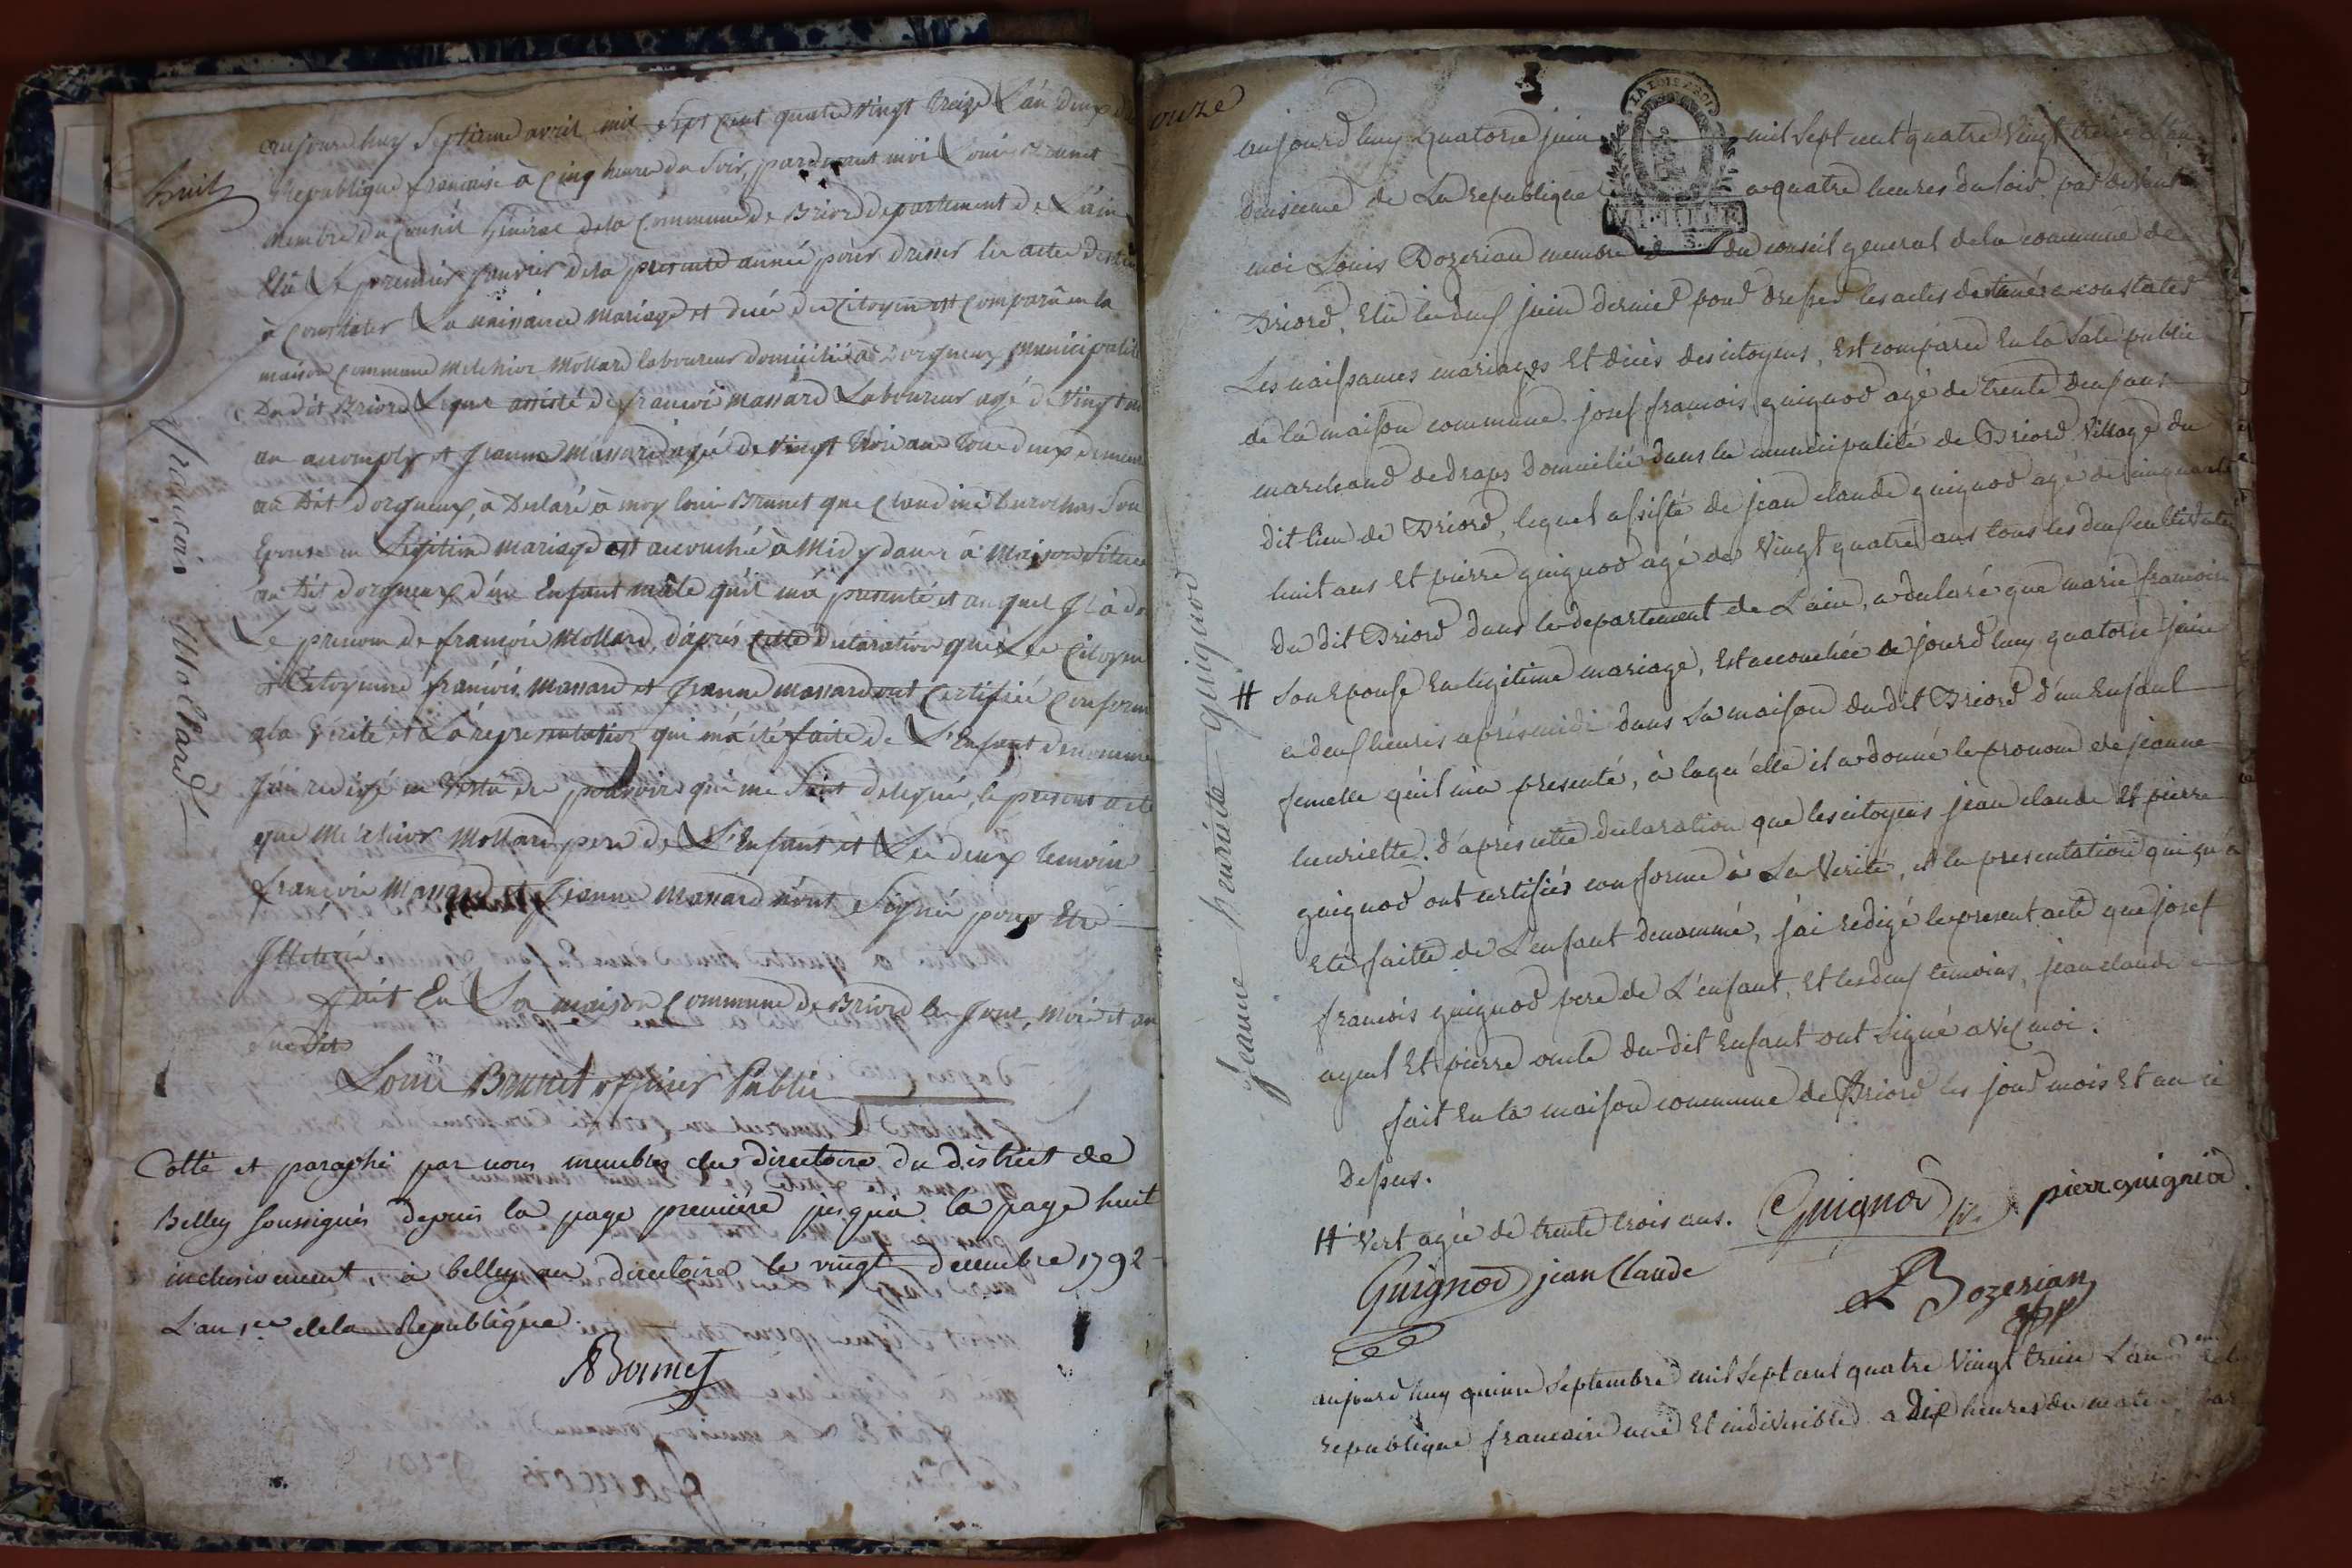 huit
aujourdhuy Septieme avril mil Sept Cent quatre vingt treize L'an deux
Republique francaise à Cinq heures du Soir, pardevant moi Louis Brunet
membre du Conseil Général dela Commune de Briord departement de L'ain
Elû Le premier janvier dela presente année pour dresser les actes
à Constater La naissance mariage et décé des Citoyens est Comparû en la
maison Commune Melchior Mollard laboureur domicilié à Dorgneux municipalité
Du dit Briord Lequel assisté de francois Massard Laboureur agé de Vingt
an accomply et Jeanne Massard agée de Vingt trois ans tous deux demeurant
au Dit dorgneux, à Declaré à moy louis Brunet que Claudine Son
Epouse en Legitime mariage est accouchée à Midy dans sa Maison Située
au Dit dorgneux d'un Enfant mâle qu'il m'a presenté et auquel Il à
Le prenom de francois Mollard, d'après cette Declaration que Les Citoyens
et Citoyenne francois Massard et Jeanne Massard ont Certifiée Conforme
ala Verité et La representation qui m'a été faite de L'Enfant denommé
J'ai redigé en Vertu des pouvoirs qui me Sont delegués, le present acte
que Melchior Mollard pere de L'Enfant et Les deux temoins
francois Massard et Jeanne Massard n'ont Signés pour Etre
Illiterés
fait En La maison Commune de Briord les Jour, mois et an
Susdits
Louis Brunet officier Public
francois Mollard
Cotté et paraphé par nous membres du directoire du district de
Belley soussignés depuis la page première jusqu'a la page huit
inclusivement, à belley au directoire le vingt decembre 1792
L'an 1er dela Republique.
onze
aujourd'huy quatorze juin mil sept cent quatre Vingt treize L'an
deusieme de La republique a quatre heures du soir par devant
moi Louis Bozerian membre du conseil general de la commune de
Briord, Elû le neuf juin dernier pour dresser les actes destinés a constater
Les naissances mariages Et décès des citoyens, Est comparû En la Sale public
de la maison commune. josef francois guignod agé de trente deus ans
marchand de draps Domicilié dans la municipalité de Briord Village du
dit lieu de Briord, lequel assisté de jean claude guignod agé de cinquante
huit ans Et pierre guignod agé de Vingt quatre ans tous les deus cultivateurs
du dit Briord dans le departement de L'ain, a declaré que marie francoise
# Son Epouse En legitime mariage, Est accouchée de jourd'huy quatorze juin
a deus heures aprés midi dans Sa maison du dit Briord d'un Enfant
femelle qu'il m'a presenté, à laqu'elle il a donné le pronom de jeanne
henriette. d'aprés cette declaration que les citoyens jean claude Et pierre
guignod ont certifiés conforme à La Verite, et la presentation qui qu'à
Eté faitte de L'enfant denommé, j'ai redigé le present acte que josef
francois guignod pere de L'enfant, Et les deus temoins, jean claude
ayeul Et pierre oncle du dit Enfant ont Signé avec moi.
fait En la maison commune de Briord les jour mois Et an ci
Dessus.
jeanne henriette guignod
# Vert agée de trente trois ans. Guignod pierre guigniod
Guignod jean Claude
L Bozerian
aujourd'huy quinze Septembre mil sept cent quatre Vingt treize L'an
republique francaise une Et indivisible a dix heures du matin par